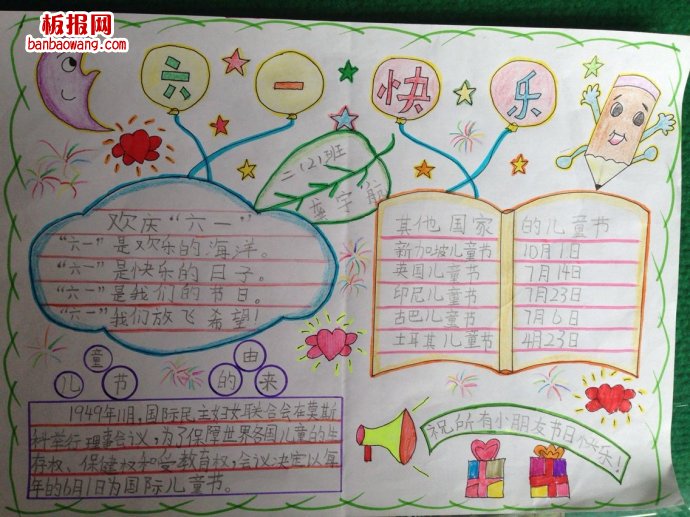 板报网
banbaowang.com
六一快乐
二(2)班
宇航
欢庆“六一”
“六一”是欢乐的海洋。
“六一”是快乐的日子。
“六一”是我们的节日。
“六一”我们放飞希望!
其他国家的儿童节
新加坡儿童节 10月1日
英国儿童节 7月14日
印尼儿童节 7月23日
古巴儿童节 7月6日
土耳其儿童节 4月23日
儿童节的由来
1949年11月,国际民主妇女联合会在莫斯
科举行理事会议,为了保障世界各国儿童的生
存权、保健权和受教育权,会议决定以每
年的6月1日为国际儿童节。
祝所有小朋友节日快乐!